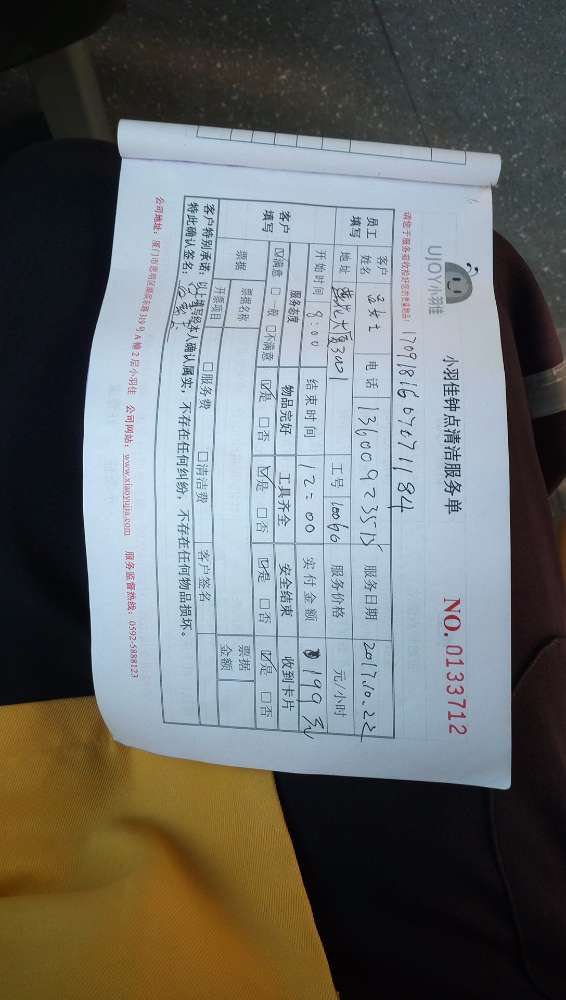 小羽佳钟点清洁服务单
UJOY小羽佳
NO. 0133712
请您于服务前收检好您的贵重物品！
1709181607071184
员工填写
客户姓名 女士 电话 13600923515 服务日期 2017.10.22
地址 大厦3201 工号 10060 服务价格 元/小时
开始时间 9:00 结束时间 12:00 实付金额 199元
客户填写
服务态度 物品完好 工具齐全 安全结束 收到卡片
☑满意 □一般 □不满意 ☑是 □否 ☑是 □否 ☑是 □否 ☑是 □否
票据 票据名称 票据金额
开票项目 □服务费 □清洁费 客户签名
客户特别承诺：以上填写经本人确认属实，不存在任何纠纷，不存在任何物品损坏。
特此确认签名：
公司地址：厦门市思明区湖滨东路319号A幢2层小羽佳 公司网站：www.xiaoyujia.com 服务监督热线：0592-5888123